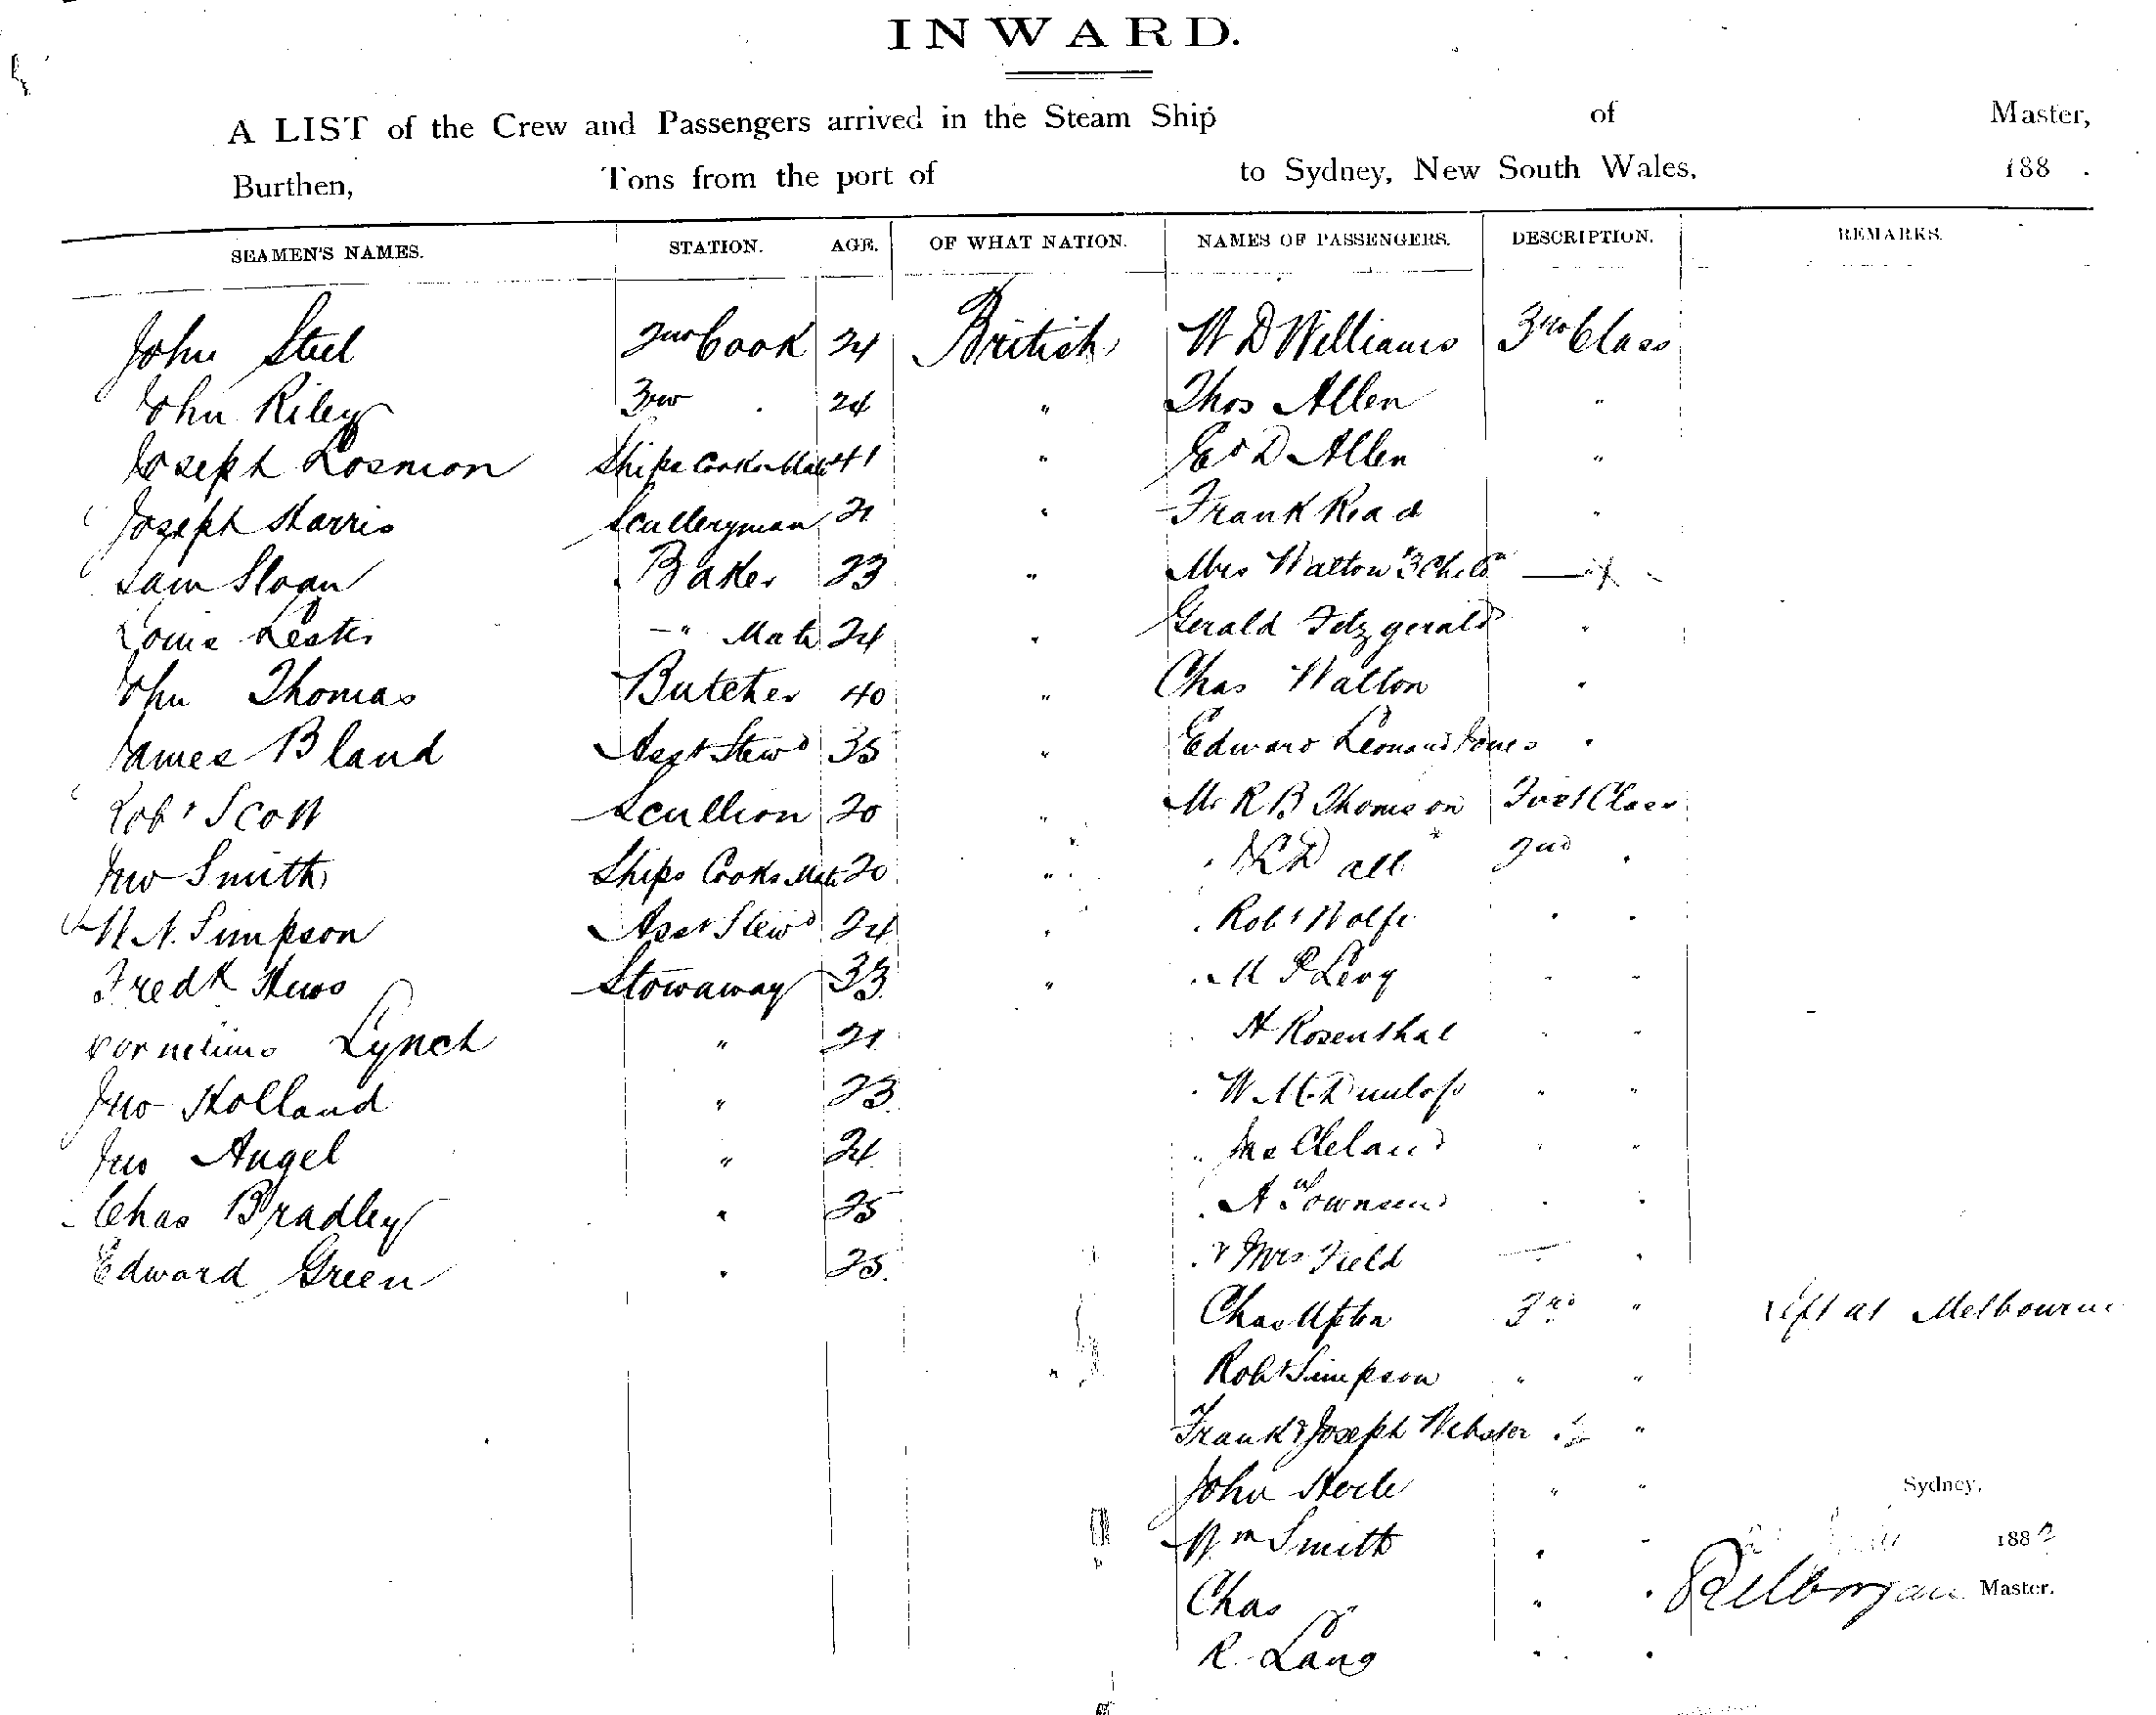 INWARD.
A LIST of the Crew and Passengers arrived in the Steam Ship of Master,
Burthen, Tons from the port of to Sydney, New South Wales, 188 .
SEAMEN'S NAMES. STATION. AGE. OF WHAT NATION. NAMES OF PASSENGERS. DESCRIPTION. REMARKS.
John Steel 2nd Cook 24 British W D Williams 3rd Class
John Riley 3rd . 24 " Thos Allen "
Joseph Losmon Ships Cooks Mate 41 " Ed D Allen "
Joseph Harris Sculleryman 21 " Frank Read "
Sam Sloan Baker 23 " Mrs Walton & 3 Child
Louis Lester " Mate 24 " Gerald Fitzgerald "
John Thomas Butcher 40 " Chas Walton "
James Bland Asst Stewd 35 " Edward Leonard Jones "
Robt Scott Scullion 20 " Mr R B Thomson First Class
Jno Smith Ships Cooks Mate 20 " 2nd "
W N. Simpson Asst Stewd 24 " " Robt Wolfe " "
Fredk Stowaway 33 " " M P Levy " "
Cornelius Lynch " 21 H Rosenthal " "
Jno Holland " 23 " W M. Dunlop " "
Jno Angel " 24 " McCleland " "
Chas Bradley " 25 " A W Townsend " "
Edward Green " 25 " & Mrs Field "
Chas Upton 3rd " Left at Melbourne
Robt Simpson " "
Frank & Joseph Webster " "
John Steele " "
Sydney,
Wm Smith " " 1882
Chas " " " Master.
R. Lang " "